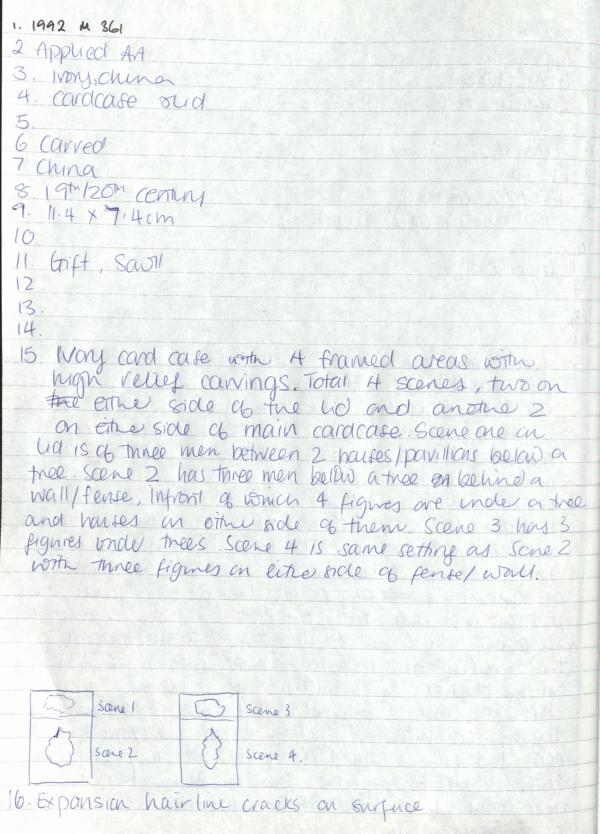 1. 1992 M 361
2 Applied AA
3. Ivory, china
4. cardcase & lid
5.
6 Carved
7 China
8. 19th/20th century
9. 11.4 x 7.4cm
10
11. Gift, Savill
12
13.
14.
15. Ivory card case with 4 framed areas with
high relief carvings. Total 4 scenes, two on
the eithe side of the lid and anothe 2
on eithe side of main cardcase. Scene one on
lid is of three men between 2 houses/pavillions below a
tree. Scene 2 has three men below a tree on behind a
wall/fense, Infront of which 4 figures are unde a tree
and houses on eithe side of them. Scene 3 has 3
figures unde trees. Scene 4 is same setting as Scene 2
with three figures on eithe side of fense/wall.
Scene 1 Scene 3
Scene 2 Scene 4.
16. Expansion hairline cracks on surface